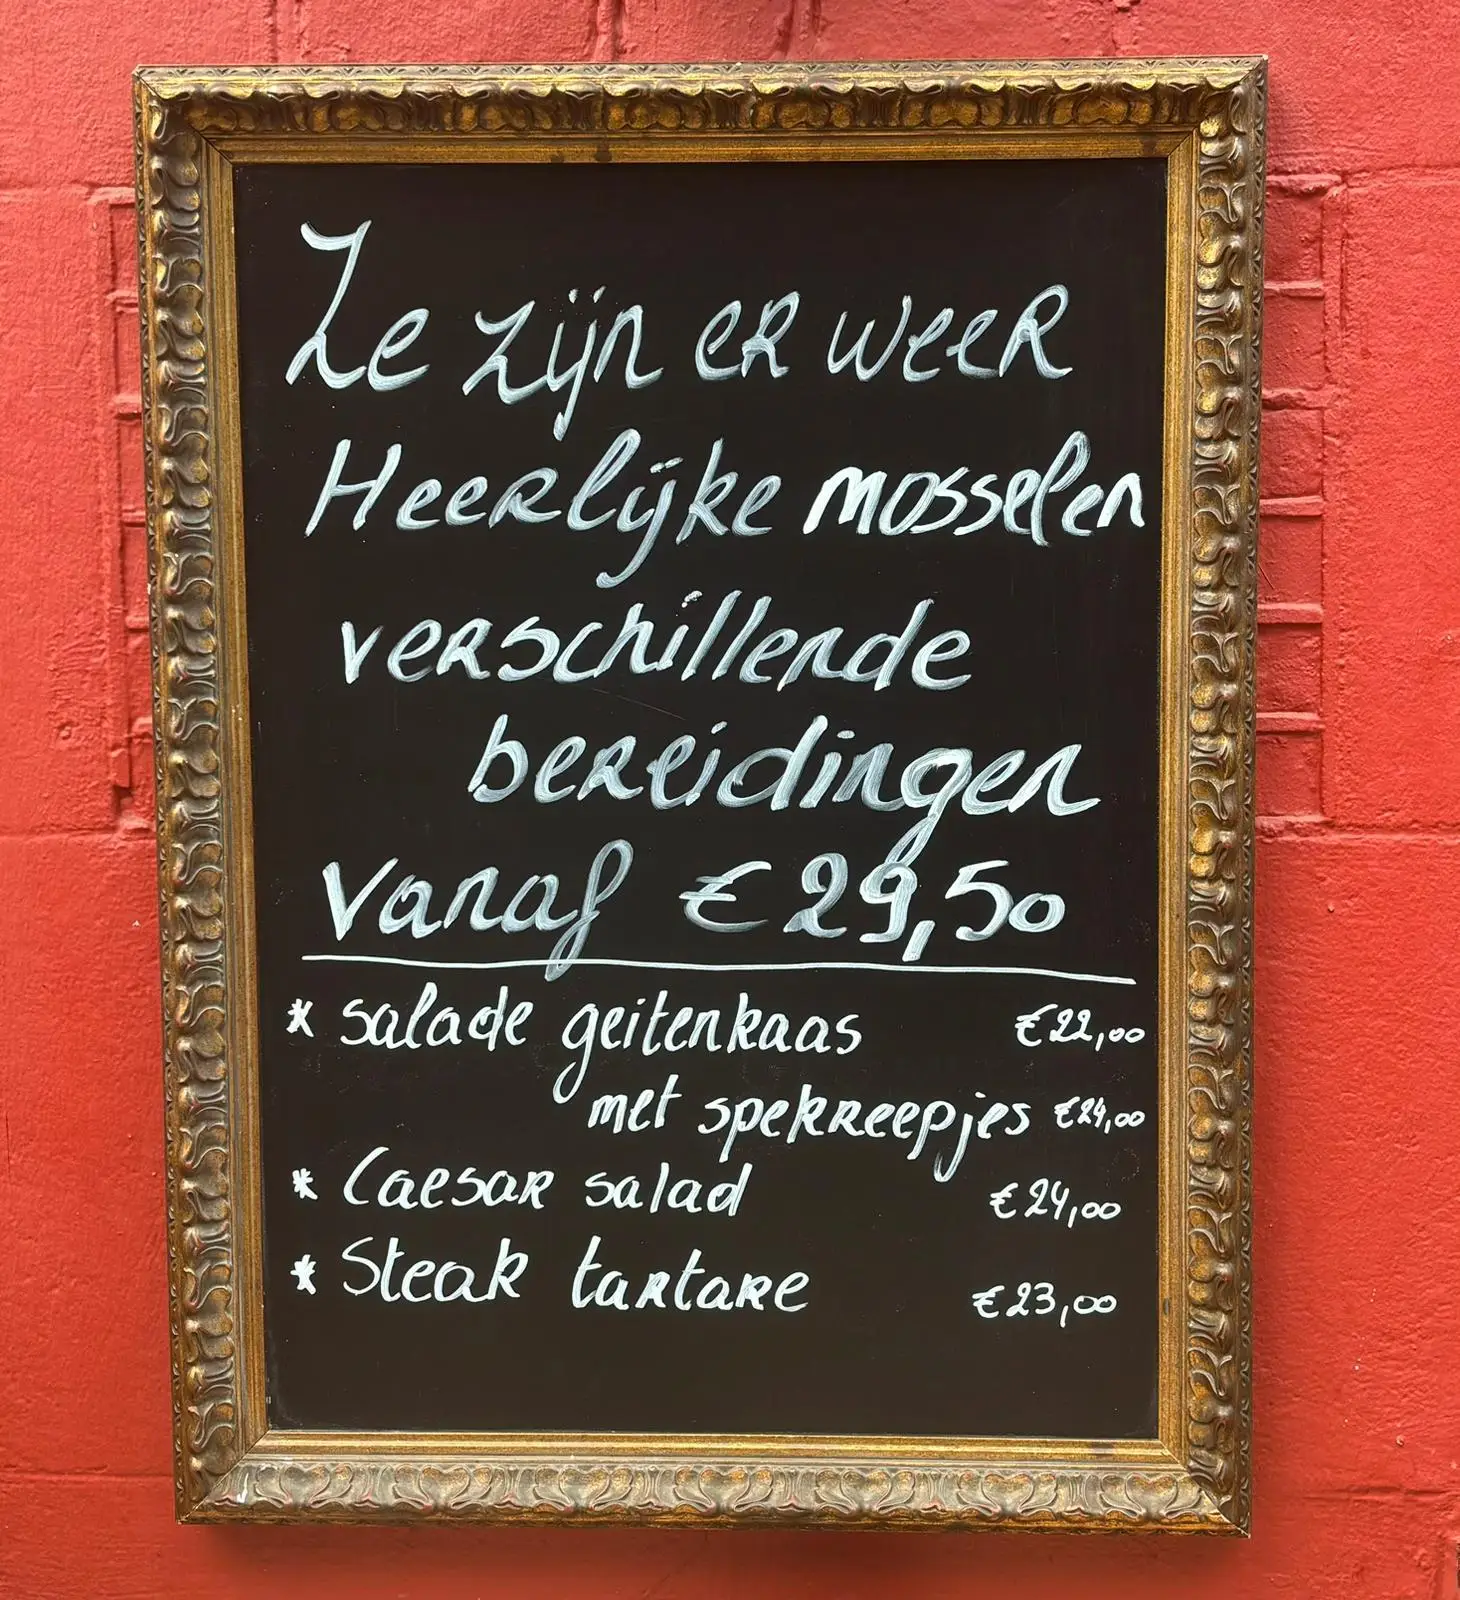 Ze zijn er weer
Heerlijke mosselen
verschillende
bereidingen
vanaf € 29,50
* salade geitenkaas €22,00
met spekreepjes €24,00
* Caesar salad €24,00
* Steak tartare €23,00